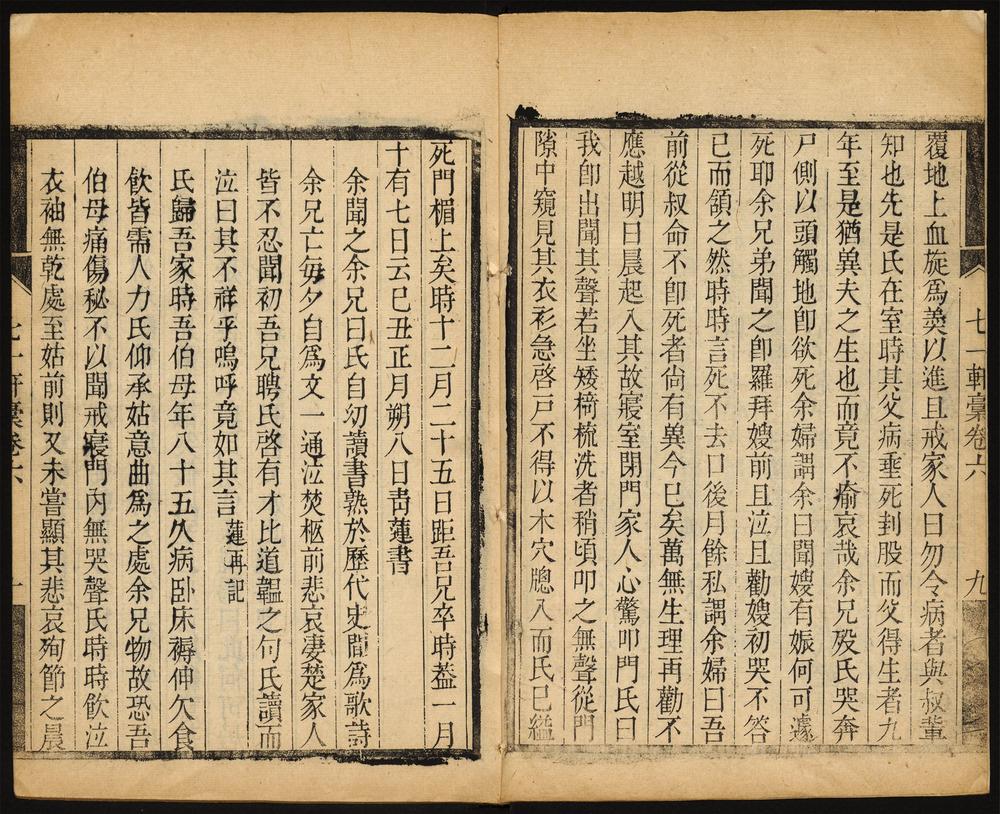 七一軒稾卷六
九
覆地上血旋爲羮以進且戒家人曰勿令病者與叔輩
知也先是氏在室時其父病垂死刲股而父得生者九
年至是猶兾夫之生也而竟不瘉哀哉余兄歿氏哭奔
尸側以頭觸地卽欲死余婦謂余曰聞嫂有娠何可遽
死耶余兄弟聞之卽羅拜嫂前且泣且勸嫂初哭不答
已而頷之然時時言死不去口後月餘私謂余婦曰吾
前從叔命不卽死者尙有兾今已矣萬無生理再勸不
應越明日晨起入其故寢室閉門家人心驚叩門氏曰
我卽出聞其聲若坐矮椅梳洗者稍頃叩之無聲從門
隙中窺見其衣衫急啓戸不得以木穴牕入而氏已縊
死門楣上矣時十二月二十五日距吾兄卒時葢一月
十有七日云已丑正月朔八日靑蓮書
余聞之余兄曰氏自幼讀書熟於歷代史間爲歌詩
余兄亡每夕自爲文一通泣焚柩前悲哀淒楚家人
皆不忍聞初吾兄聘氏啓有才比道韞之句氏讀而
泣曰其不祥乎嗚呼竟如其言 蓮再記
氏歸吾家時吾伯母年八十五久病卧床褥伸欠食
飮皆需人力氏仰承姑意曲爲之處余兄物故恐吾
伯母痛傷秘不以聞戒寢門內無哭聲氏時時飮泣
衣袖無乾處至姑前則又未嘗顯其悲哀殉節之晨
七一軒稾卷六
十